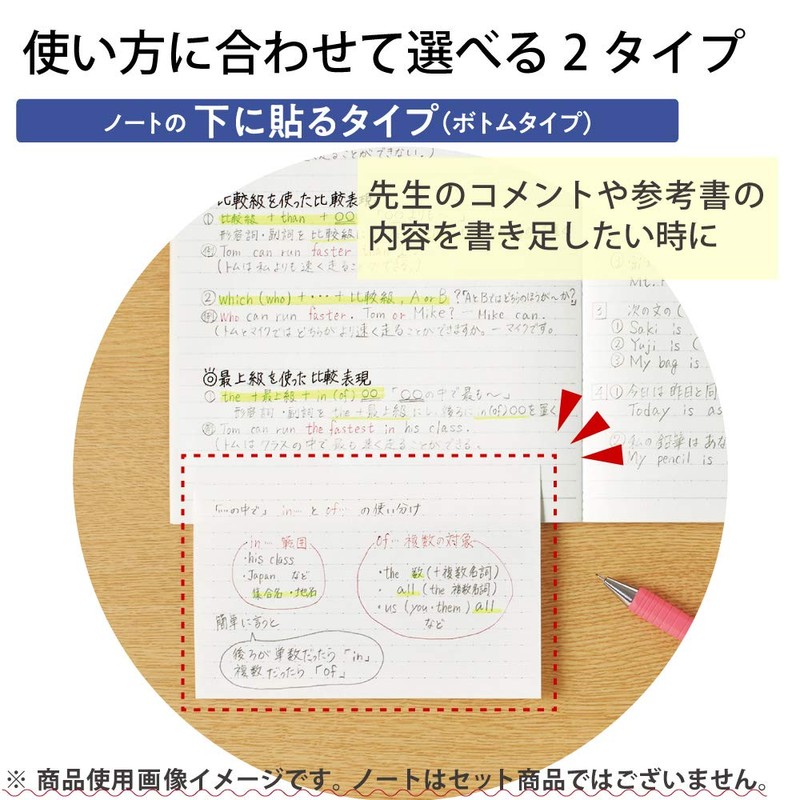 使い方に合わせて選べる2タイプ
ノートの下に貼るタイプ(ボトムタイプ)
先生のコメントや参考書の
内容を書き足したい時に
ることができない。)
比較級を使った比較表現
① 比較級 + than + ○○
形容詞・副詞を比較級
例 Tom can run faster
(トムは私よりも速く走ること
② which (who) + ・・・ + 比較級, A or B ?「AとBではどちらのほうが〜か?」
例 Who can run faster. Tom or Mike? — Mike can.
(トムとマイクではどちらがより速く走ることができますか。— マイクです。
◎最上級を使った比較表現
① the + 最上級 + in (of) ○○ 「○○の中で最も〜」
形容詞・副詞を the + 最上級にし、後ろに in(of)○○を置く
例 Tom can run the fastest in his class.
(トムはクラスの中で最も速く走ることができる。
3 次の文の(
① Saki is
② Yuji is (
③ My bag is
4 ① 今日は昨日と同
Today is as
② 私の鉛筆はあな
My pencil is
「…の中で」 in… と of… の使い分け
in… 範囲
・his class
・Japan など
集合名・地名
of… 複数の対象
・the 数 (+複数名詞)
・all (the 複数名詞)
・us (you・them) all
など
簡単に言うと
後ろが単数だったら「in」
複数だったら「of」
※ 商品使用画像イメージです。ノートはセット商品ではございません。